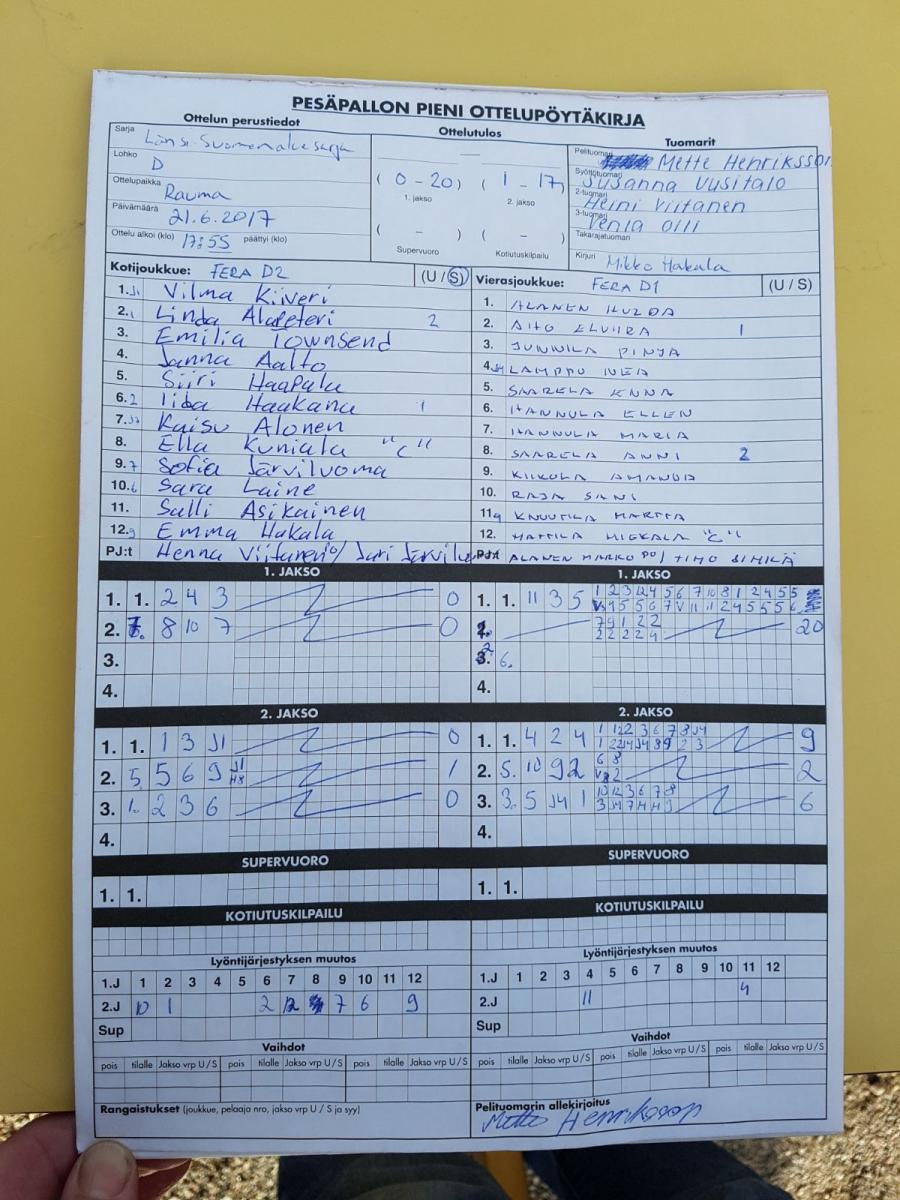 PESÄPALLON PIENI OTTELUPÖYTÄKIRJA
Ottelun perustiedot
Ottelutulos
Tuomarit
Sarja Länsi-Suomen aluesarja
Lohko D
Ottelupaikka Rauma
Päivämäärä 21.6.2017
Ottelu alkoi (klo) 17:55 päättyi (klo)
( 0 - 20 ) ( 1 - 17 )
1. jakso 2. jakso
( - ) ( - )
Supervuoro Kotiutuskilpailu
Pelituomari Mette Henriksson
Syöttötuomari Susanna Uusitalo
2-tuomari Heini Viitanen
3-tuomari Venla Olli
Takarajatuomari
Kirjuri Mikko Hakala
Kotijoukkue: FERA D2 (U / S)
1. Vilma Kiiveri
2. Linda Alapeteri 2
3. Emilia Townsend
4. Janna Aalto
5. Siiri Haapala
6. 2 Iida Haakana 1
7. Kaisu Alonen
8. Ella Kuniala "C"
9. 7 Sofia Järviluoma
10. 6 Sara Laine
11. Salli Asikainen
12. 9 Emma Hakala
PJ:t Henna Viitanen / Jari
Vierasjoukkue: FERA D1 (U / S)
1. ALANEN HULDA
2. AHO ELVIIRA 1
3. JUNNILA PINJA
4. LAMPPU NEA
5. SAARELA ENNA
6. HANNULA ELLEN
7. HANNULA MARIA
8. SAARELA ANNI 2
9. KIIKOLA AMANDA
10. RAJA SANI
11. KNUUTILA MARTTA
12. MATTILA MICKALA "C"
PJ:t ALANEN MARKO PO / TIMO
1. JAKSO
1. 1. 2 4 3 0
2. 8 10 7 0
3.
4.
1. JAKSO
1. 1. 11 3 5
2. 20
3. 6.
4.
2. JAKSO
1. 1. 1 3 J1 0
2. 5. 5 6 9 1
3. 1. 2 3 6 0
4.
2. JAKSO
1. 1. 4 2 4 9
2. 5. 10 9 2 2
3. 3. 5 J4 1 6
4.
SUPERVUORO
1. 1.
SUPERVUORO
1. 1.
KOTIUTUSKILPAILU
KOTIUTUSKILPAILU
Lyöntijärjestyksen muutos
1.J 1 2 3 4 5 6 7 8 9 10 11 12
2.J 10 1 2 12 7 6 9
Sup
Lyöntijärjestyksen muutos
1.J 1 2 3 4 5 6 7 8 9 10 11 12
2.J 11 4
Sup
Vaihdot
pois tilalle Jakso vrp U / S pois tilalle Jakso vrp U / S pois tilalle Jakso vrp U / S
Vaihdot
pois tilalle Jakso vrp U / S pois tilalle Jakso vrp U / S pois tilalle Jakso vrp U / S
Rangaistukset (joukkue, pelaaja nro, jakso vrp U / S ja syy)
Pelituomarin allekirjoitus
Mette Henriksson